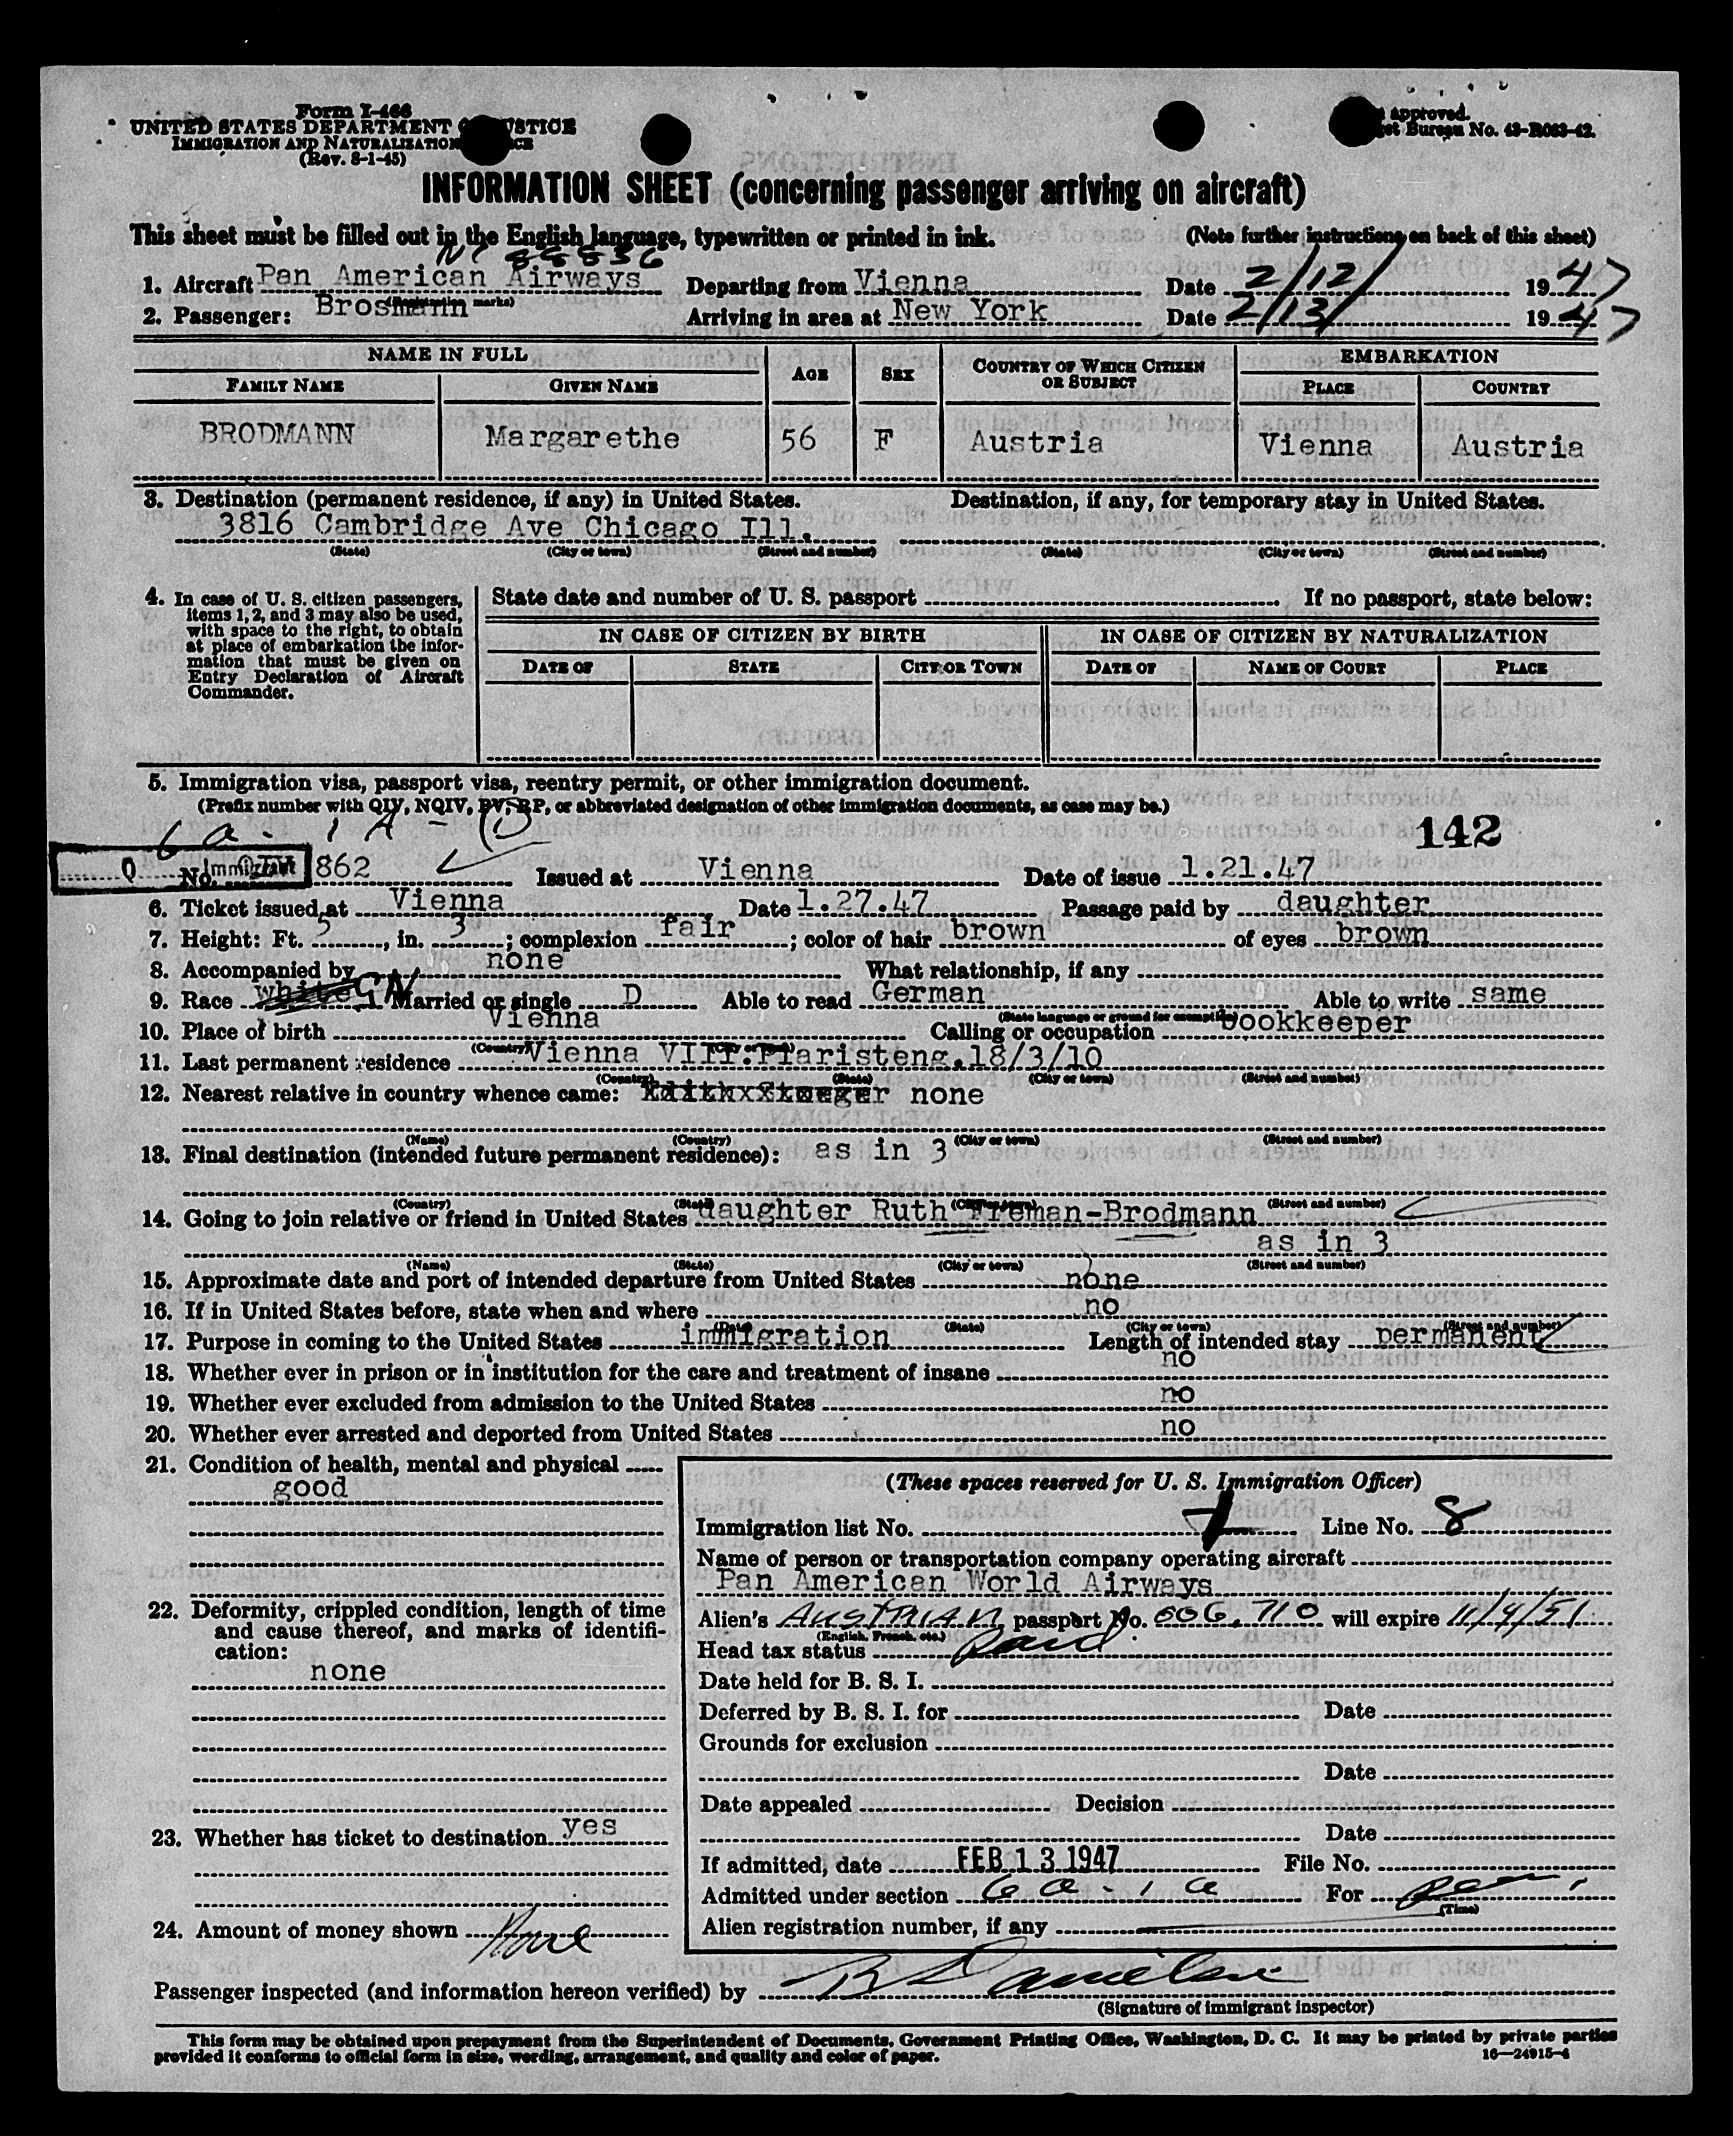 Form I-466
UNITED STATES DEPARTMENT OF JUSTICE
IMMIGRATION AND NATURALIZATION SERVICE
(Rev. 8-1-45)
approved.
Bureau No. 43-R063-42.
INFORMATION SHEET (concerning passenger arriving on aircraft)
This sheet must be filled out in the English language, typewritten or printed in ink. (Note further instructions on back of this sheet)
NC 88836
1. Aircraft Pan American Airways Departing from Vienna Date 2/12/ 1947
(Registration marks)
2. Passenger: Brosmann Arriving in area at New York Date 2/13/ 1947
NAME IN FULL AGE SEX COUNTRY OF WHICH CITIZEN OR SUBJECT EMBARKATION
FAMILY NAME GIVEN NAME PLACE COUNTRY
BRODMANN Margarethe 56 F Austria Vienna Austria
3. Destination (permanent residence, if any) in United States. Destination, if any, for temporary stay in United States.
3816 Cambridge Ave Chicago Ill.
(State) (City or town) (Street and number) (State) (City or town) (Street and number)
4. In case of U. S. citizen passengers, items 1, 2, and 3 may also be used, with space to the right, to obtain at place of embarkation the information that must be given on Entry Declaration of Aircraft Commander.
State date and number of U. S. passport If no passport, state below:
IN CASE OF CITIZEN BY BIRTH IN CASE OF CITIZEN BY NATURALIZATION
DATE OF STATE CITY OR TOWN DATE OF NAME OF COURT PLACE
5. Immigration visa, passport visa, reentry permit, or other immigration document.
(Prefix number with QIV, NQIV, PV, RP, or abbreviated designation of other immigration documents, as case may be.)
6 a - 1 A - (1)
142
Q Immigrant No. QIV 862 Issued at Vienna Date of issue 1.21.47
6. Ticket issued at Vienna Date 1.27.47 Passage paid by daughter
7. Height: Ft. 5, in. 3; complexion fair; color of hair brown of eyes brown
8. Accompanied by none What relationship, if any
9. Race white GN Married or single D Able to read German Able to write same
(State language or ground for exemption)
10. Place of birth Vienna Calling or occupation bookkeeper
(Country) (City or town)
11. Last permanent residence Vienna VIII.Piaristeng.18/3/10
(Country) (State) (City or town) (Street and number)
12. Nearest relative in country whence came: none
(Name) (Country) (City or town) (Street and number)
13. Final destination (intended future permanent residence): as in 3
(Country) (State) (City or town) (Street and number)
14. Going to join relative or friend in United States daughter Ruth Freman-Brodmann
as in 3
(Name) (State) (City or town) (Street and number)
15. Approximate date and port of intended departure from United States none
16. If in United States before, state when and where no
(Date) (State) (City or town) (Street and number)
17. Purpose in coming to the United States immigration Length of intended stay permanent
18. Whether ever in prison or in institution for the care and treatment of insane no
19. Whether ever excluded from admission to the United States no
20. Whether ever arrested and deported from United States no
21. Condition of health, mental and physical
good
22. Deformity, crippled condition, length of time and cause thereof, and marks of identification:
none
23. Whether has ticket to destination yes
24. Amount of money shown None
(These spaces reserved for U. S. Immigration Officer)
Immigration list No. Line No. 8
Name of person or transportation company operating aircraft
Pan American World Airways
Alien's AUSTRIAN passport No. 006.710 will expire 11/4/51
(English, French, etc.)
Head tax status Paid
Date held for B. S. I.
Deferred by B. S. I. for Date
Grounds for exclusion
Date
Date appealed Decision
Date
If admitted, date FEB 13 1947 File No.
Admitted under section 6 a - 1 a For per.
(Time)
Alien registration number, if any
Passenger inspected (and information hereon verified) by
(Signature of immigrant inspector)
This form may be obtained upon prepayment from the Superintendent of Documents, Government Printing Office, Washington, D. C. It may be printed by private parties
provided it conforms to official form in size, wording, arrangement, and quality and color of paper.
16—24915-4